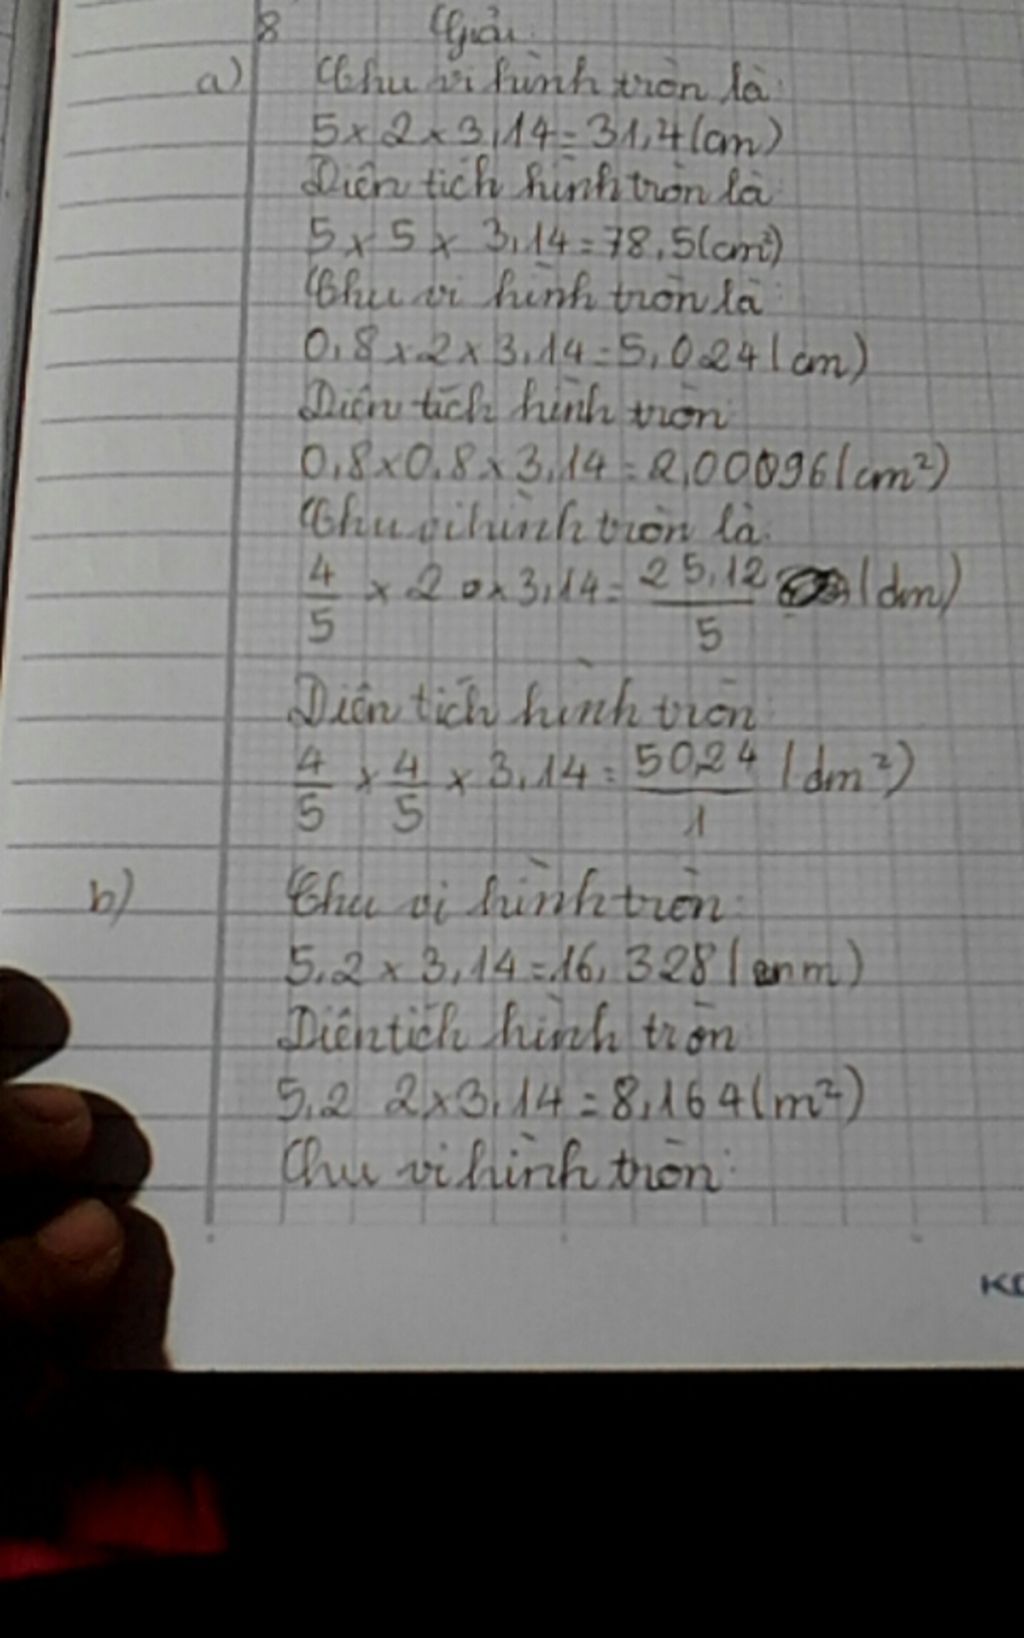 8 Giải
a) Chu vi hình tròn là:
5 x 2 x 3,14 = 31,4 (cm)
Diện tích hình tròn là:
5 x 5 x 3,14 = 78,5 (cm²)
Chu vi hình tròn là:
0,8 x 2 x 3,14 = 5,024 (cm)
Diện tích hình tròn:
0,8 x 0,8 x 3,14 = 2,00096 (cm²)
Chu vi hình tròn là:
4/5 x 2 x 3,14 = 25,12/5 (dm)
Diện tích hình tròn:
4/5 x 4/5 x 3,14 = 5024/1 (dm²)
b) Chu vi hình tròn:
5,2 x 3,14 = 16,328 (m)
Diện tích hình tròn
5,2 2 x 3,14 = 8,164 (m²)
Chu vi hình tròn: